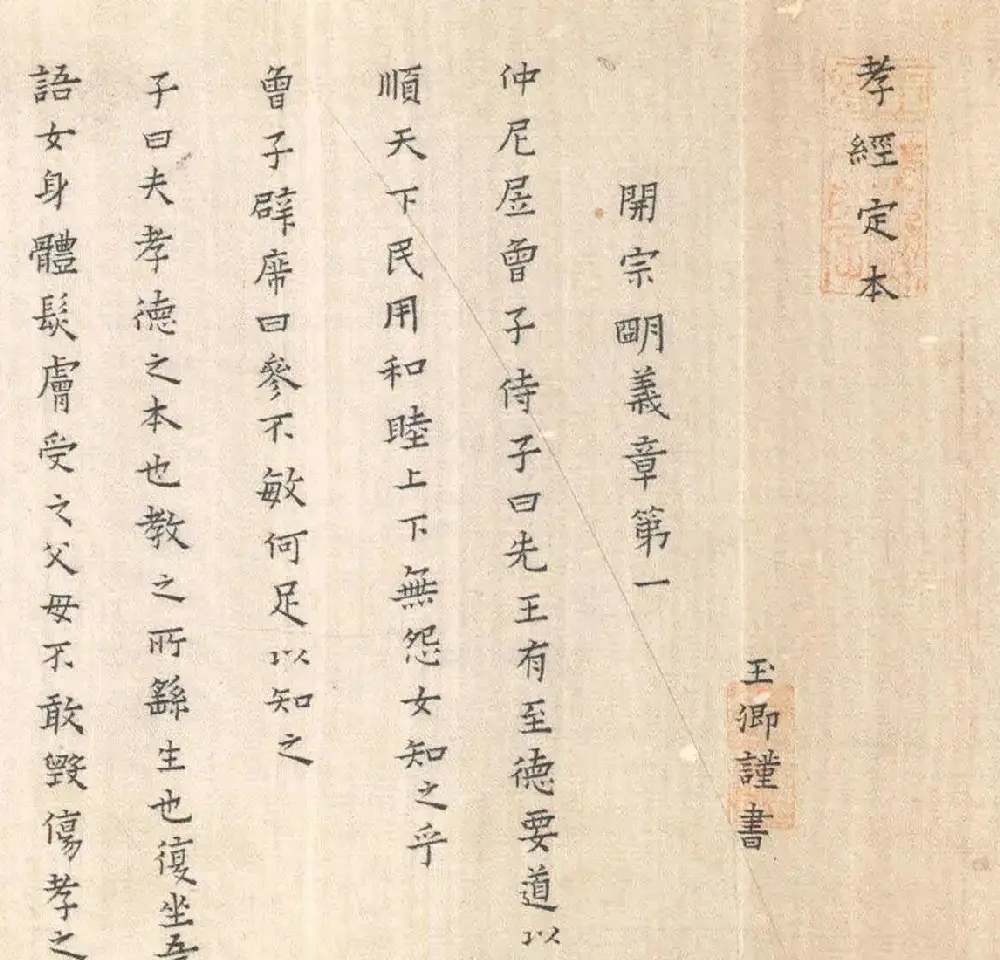 孝經定本
玉卿謹書
開宗朙義章第一
仲尼凥曾子侍子曰先王有至德要道以
順天下民用和睦上下無怨女知之乎
曾子辟席曰參不敏何足以知之
子曰夫孝德之本也教之所繇生也復坐吾
語女身體髮膚受之父母不敢毀傷孝之